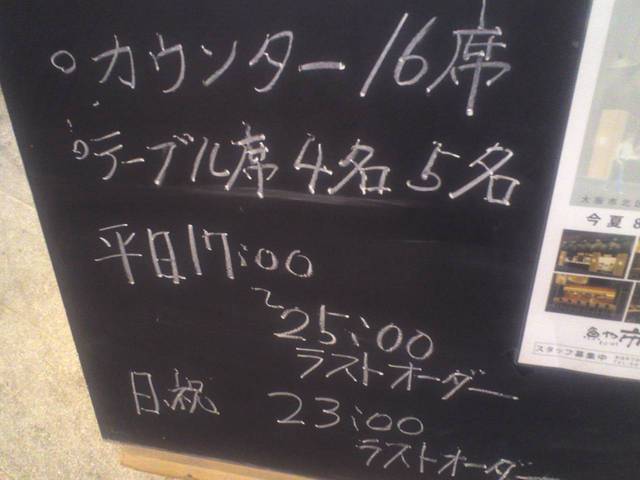 ○カウンター16席
○テーブル席 4名 5名
平日17:00
〜
25:00
ラストオーダー
日、祝 23:00
ラストオーダー
大阪市北区
今夏8
魚や市
スタッフ募集中